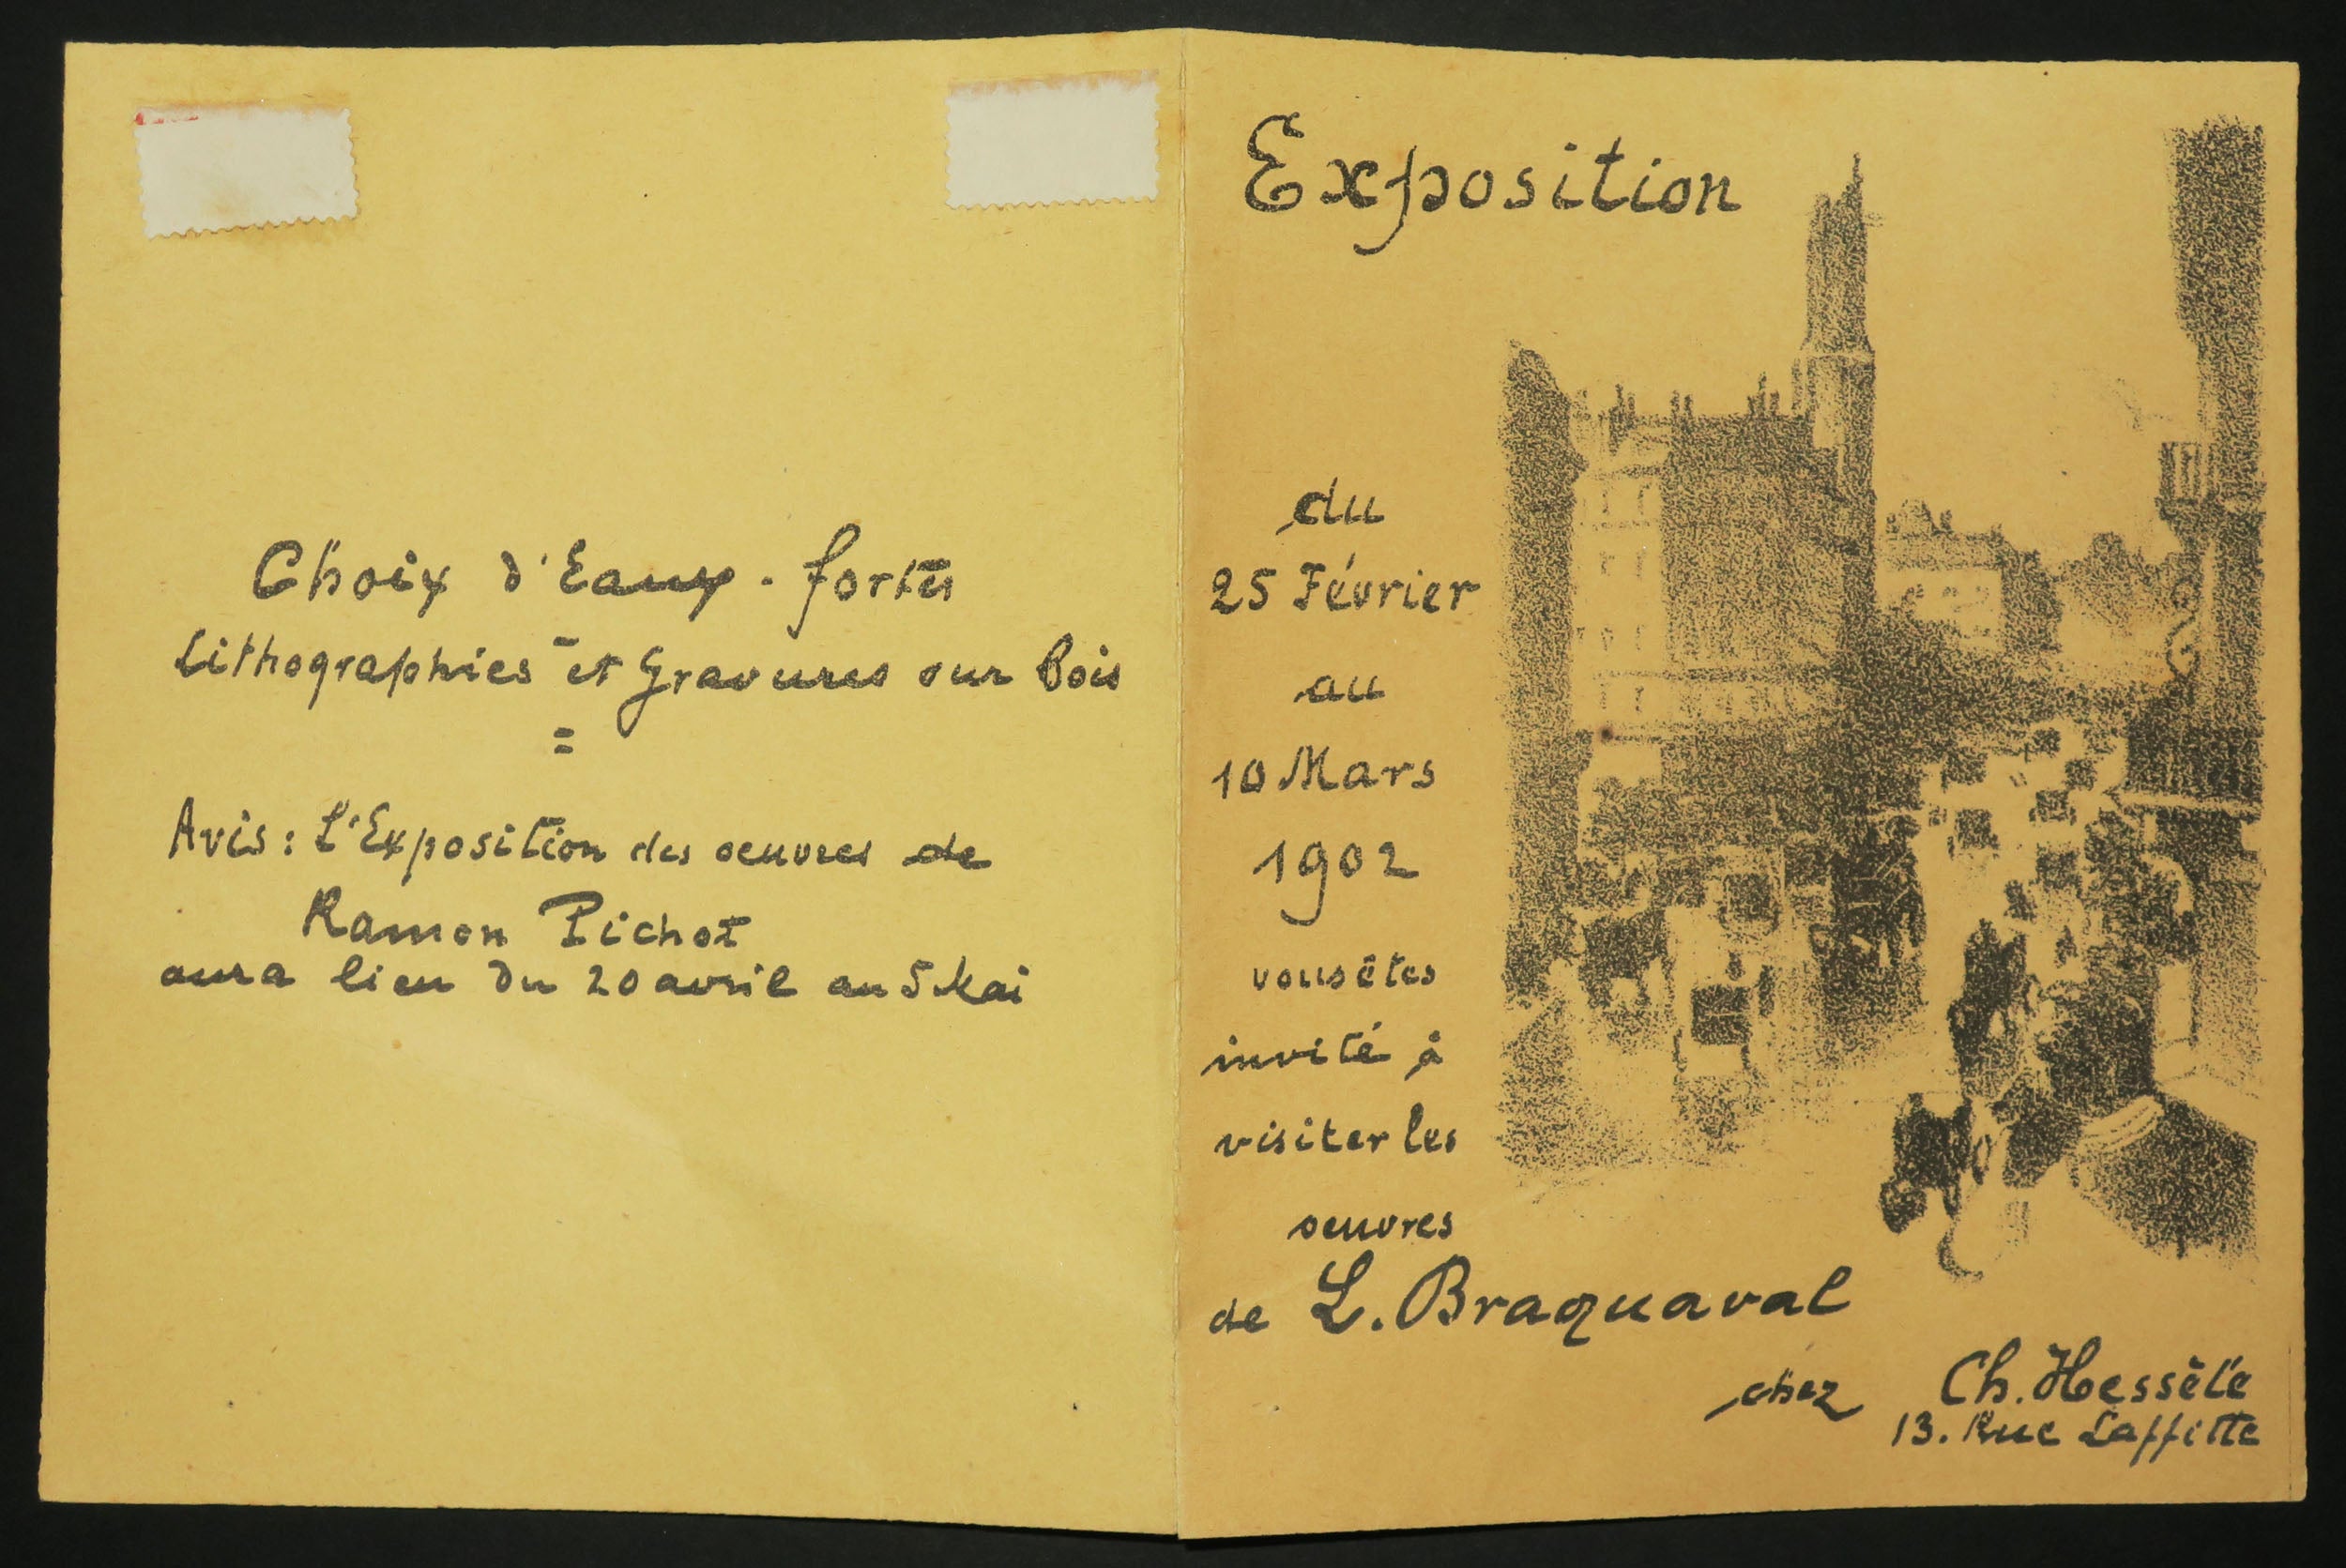 Choix d'Eaux-fortes
Lithographies et Gravures sur Bois
=
Avis: L'Exposition des oeuvres de
Ramon Pichot
aura lieu du 20 avril au 5 Mai
Exposition
du
25 Février
au
10 Mars
1902
vous êtes
invité à
visiter les
oeuvres
de L. Braquaval
chez Ch. Hessèle
13. Rue Laffitte